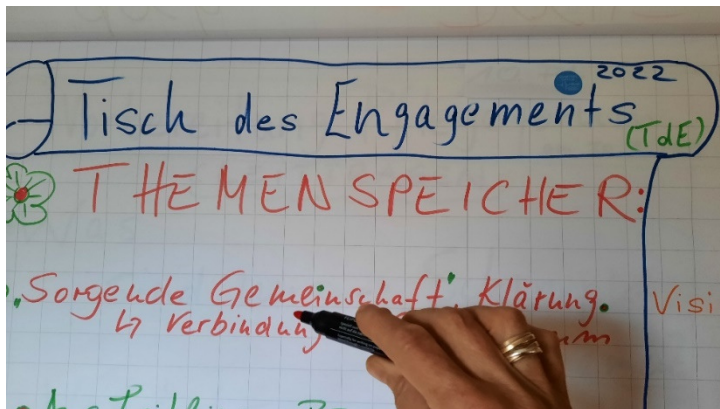 2022
Tisch des Engagements
(TdE)
THEMENSPEICHER:
"Sorgende Gemeinschaft". Klärung.
↳ Verbindung
Visi